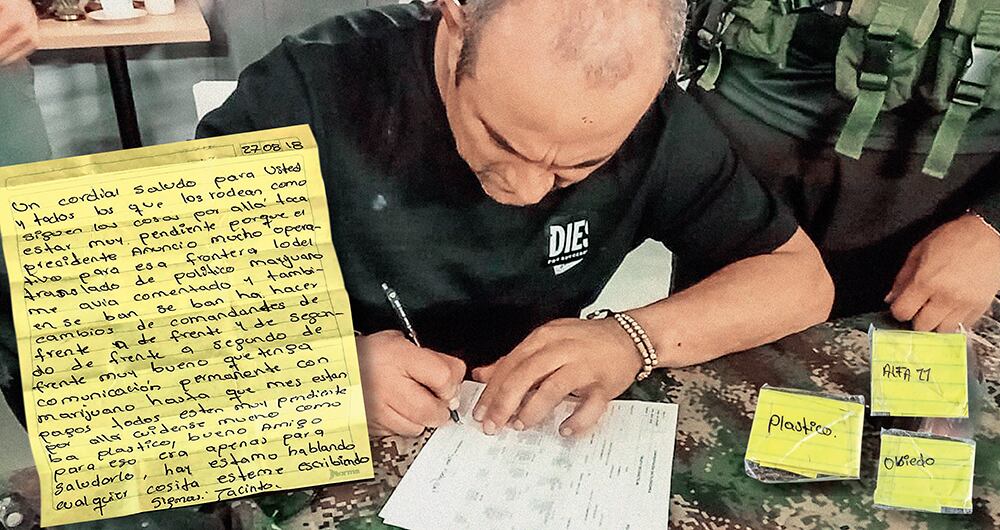 27 08 18
Un cordial saludo para Usted
y todos los que los rodean como
siguen las cosas por alla toca
estar muy pendiente porque el
presidente Anuncio mucho opera-
tivo para esa frontera lodel
translado de politico marijuano
me avia comentado y tambi-
en se ban se ban ha hacer
cambios de comandantes de
frente a de frente y de segun-
do de frente a segundo de
frente muy bueno que tenga
comunicación permanente con
marijuano hasta que mes estan
pagos todos esten muy pendiente
por alla cuidense mucho como
ba plastico, bueno Amigo
para eso era apenas para
Saludarlo, hay estamo hablando
cualquier cosita esteme escribiendo
Sigmas: Jacinto.
norma
DIES
plastico.
ALFA 11
Obiedo